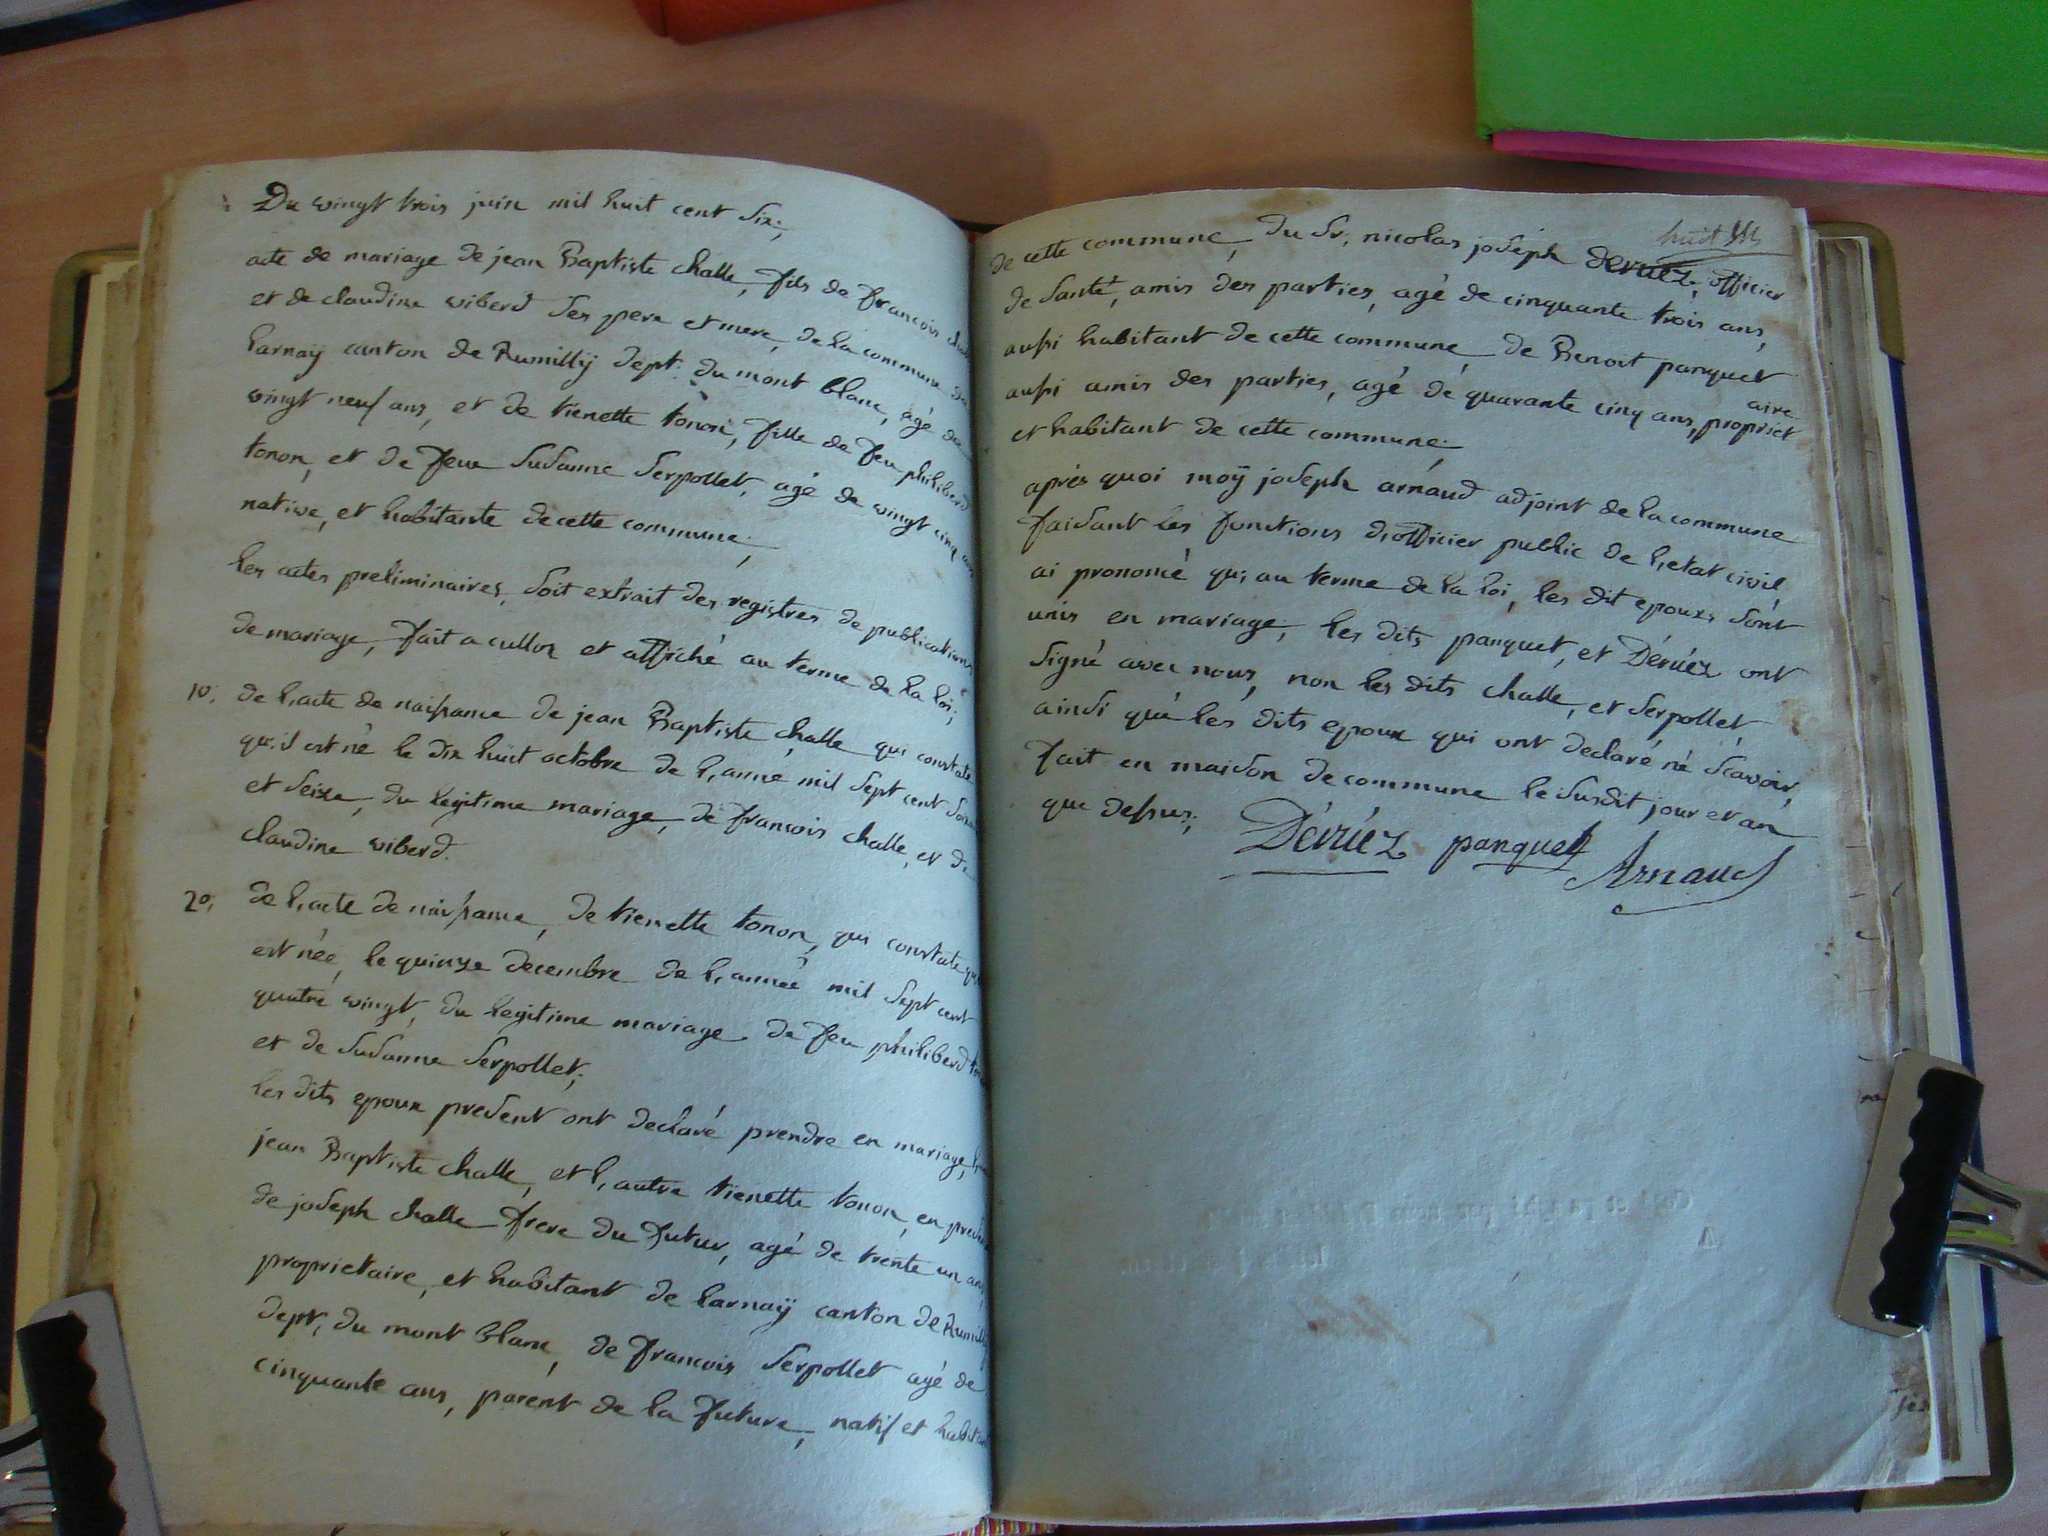 Du vingt trois juin mil huit cent six;
acte de mariage de jean Baptiste challe, fils de francois
et de claudine viberd ses pere et mere, de la commune
harnaÿ canton de Rumillÿ dept. du mont blanc, agé de
vingt neuf ans, et de tienette tonon, fille de feu philiberd
tonon, et de feue Susanne Serpollet, agé de vingt cinq ans
native, et habitante de cette commune;
les actes preliminaires, soit extrait des registres de publications
de mariage, fait a culloz et affiché au terme de la loi;
10; de l,acte de naissance de jean Baptiste challe qui constate
qu,il est né le dix huit octobre de l,anné mil sept cent
et seize, du legitime mariage, de francois challe, et de
claudine viberd.
20; de l,acte de naissance, de tienette tonon, qui constate
est née, le quinze decembre de l,anneé mil sept cent
quatre vingt, du legitime mariage de feu philiberd
et de Susanne Serpollet;
les dits epoux present ont declaré prendre en mariage,
jean Baptiste challe, et l,autre tienette tonon, en
de joseph challe frere du futur, agé de trente un ans,
proprietaire, et habitant de harnaÿ canton de
dept, du mont blanc, de francois Serpollet agé de
cinquante ans, parent de la future, natif et
huit
de cette commune, du Sr, nicolas joseph deruez, officier
de Santé, amis des parties, agé de cinquante trois ans,
aussi habitant de cette commune, de Benoit panquet
aussi amis des parties, agé dé quarante cinq ans, propriet aire
et habitant de cette commune.
après quoi moÿ joseph arnaud adjoint de la commune
faisant les fonctions d,officier public de l,etat civil
ai prononcé qu, au terme de la loi, les dit epoux, sont
unis en mariage, les dits panquet, et Déruéz ont
signé avec nous, non les dits challe, et Serpollet,
ainsi qué les dits epoux qui ont declaré né scavoir,
fait en maison de commune le susdit jour et an
que dessus;
Dérüéz panquet Arnaud